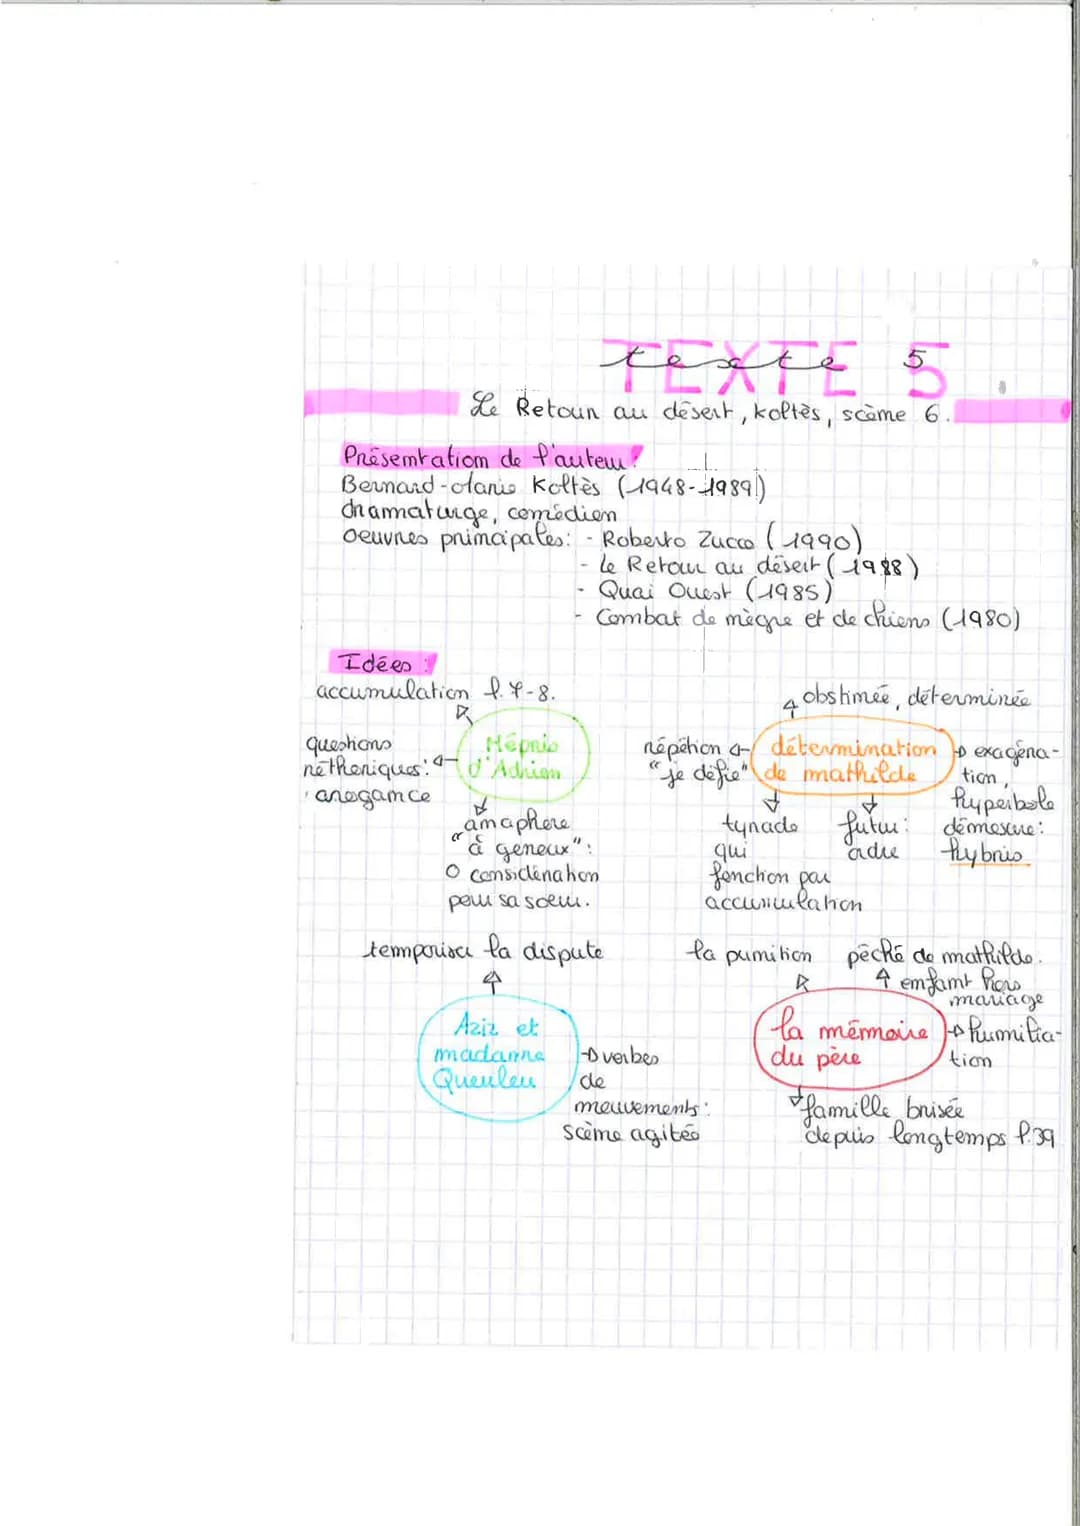 TEXTE 5
texte 5
Le Retour au désert, Koltès, scène 6.
Présentation de l'auteur :
Bernard-Marie Koltès (1948-1989)
dramaturge, comédien
Oeuvres principales : - Roberto Zucco (1990)
- Le Retour au désert (1988)
- Quai Ouest (1985)
- Combat de nègre et de chiens (1980)
Idées :
accumulation l.7-8.
questions
réthoriques :
arogance
Mépris
d'Adrien
anaphore
"à genoux" :
0 considération
pour sa soeur.
obstinée, déterminée
répétion
"je défie"
détermination
de mathilde
exagéra-
tion,
hyperbole
démesure :
hybris
tyrade
qui
fonction par
accumulation
futur :
temporiser la dispute
Aziz et
madame
Queuleu
verbes
de
mouvements :
scène agitée
la punition
péché de mathilde.
enfant hors
mariage
la mémoire
du père
humilia-
tion
famille brisée
depuis longtemps l.39